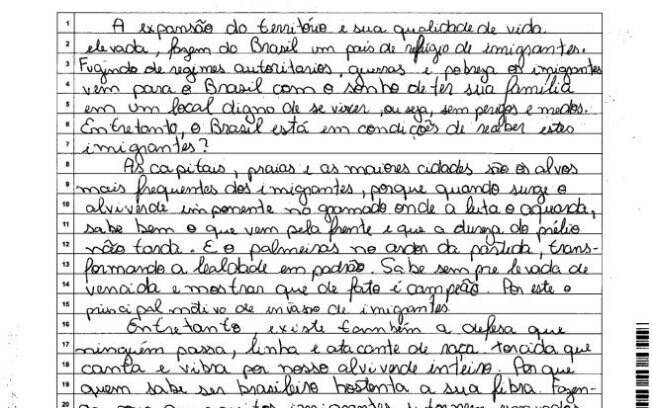 1 A expansão do território e sua qualidade de vida
2 elevada, fazem do Brasil um país de refúgio de imigrantes.
3 Fugindo de regimes autoritarios, guerras e pobreza os imigrantes
4 vem para o Brasil com o sonho de ter sua família
5 em um local digno de se viver, ou seja, sem perigos e medos.
6 Entretanto, o Brasil está em condições de receber estes
7 imigrantes?
8 As capitais, praias e as maiores cidades são os alvos
9 mais frequentes dos imigrantes, porque quando surge o
10 alviverde imponente no gramado onde a luta o aguarda,
11 sabe bem o que vem pela frente e que a dureza do prélio
12 não tarda. E o palmeiras no ardor da partida, trans-
13 formando a lealdade em padrão. Sabe sempre levada de
14 vencida e mostrar que de fato é campeão. Por este o
15 principal motivo de invasão de imigrantes
16 Entretanto, existe também a defesa que
17 ninguém passa, linha e atacante de raça. torcida que
18 canta e vibra por nosso alviverde inteiro. Por que
19 quem sabe ser brasileiro hostenta a sua fibra. Fazen-
20 imigrantes